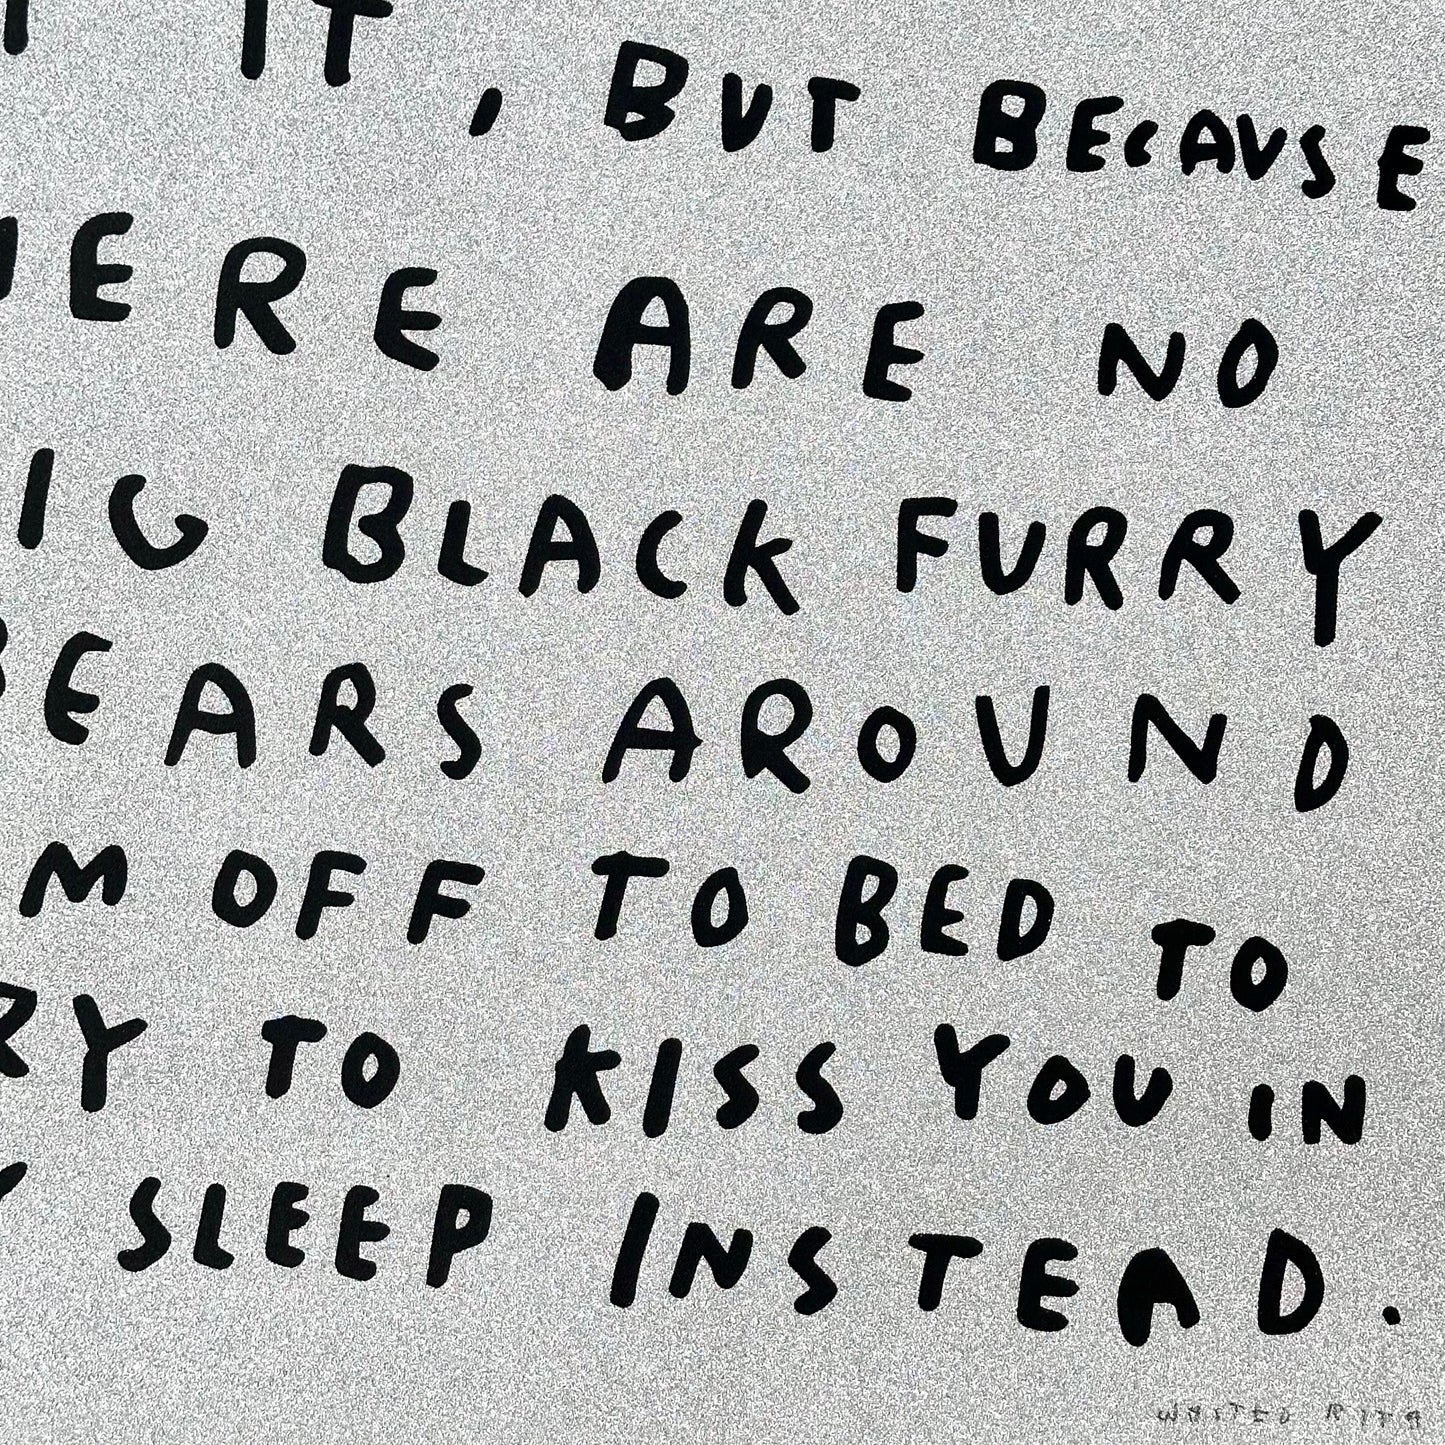 IT, BUT BECAUSE
HERE ARE NO
IG BLACK FURRY
BEARS AROUND
M OFF TO BED TO
RY TO KISS YOU IN
Y SLEEP INSTEAD.
WASTED RITA